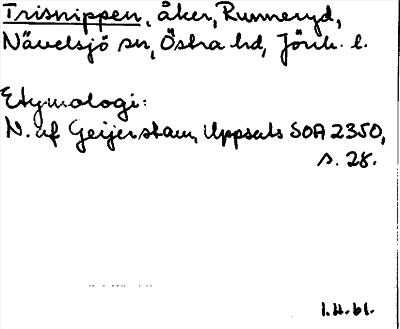 Trisnippen, åker, Runneryd,
Nävelsjö sn, Östra hd, Jönk. l.
Etymologi:
N. af Geijerstam, Uppsats SOA 2350,
s. 28.
1.11.61.